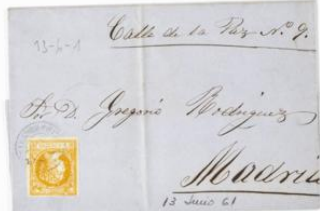 Calle de la Paz Nº 9.
13-6-1
Sr. D. Gregorio Rodriguez
Madrid
13 Junio 61